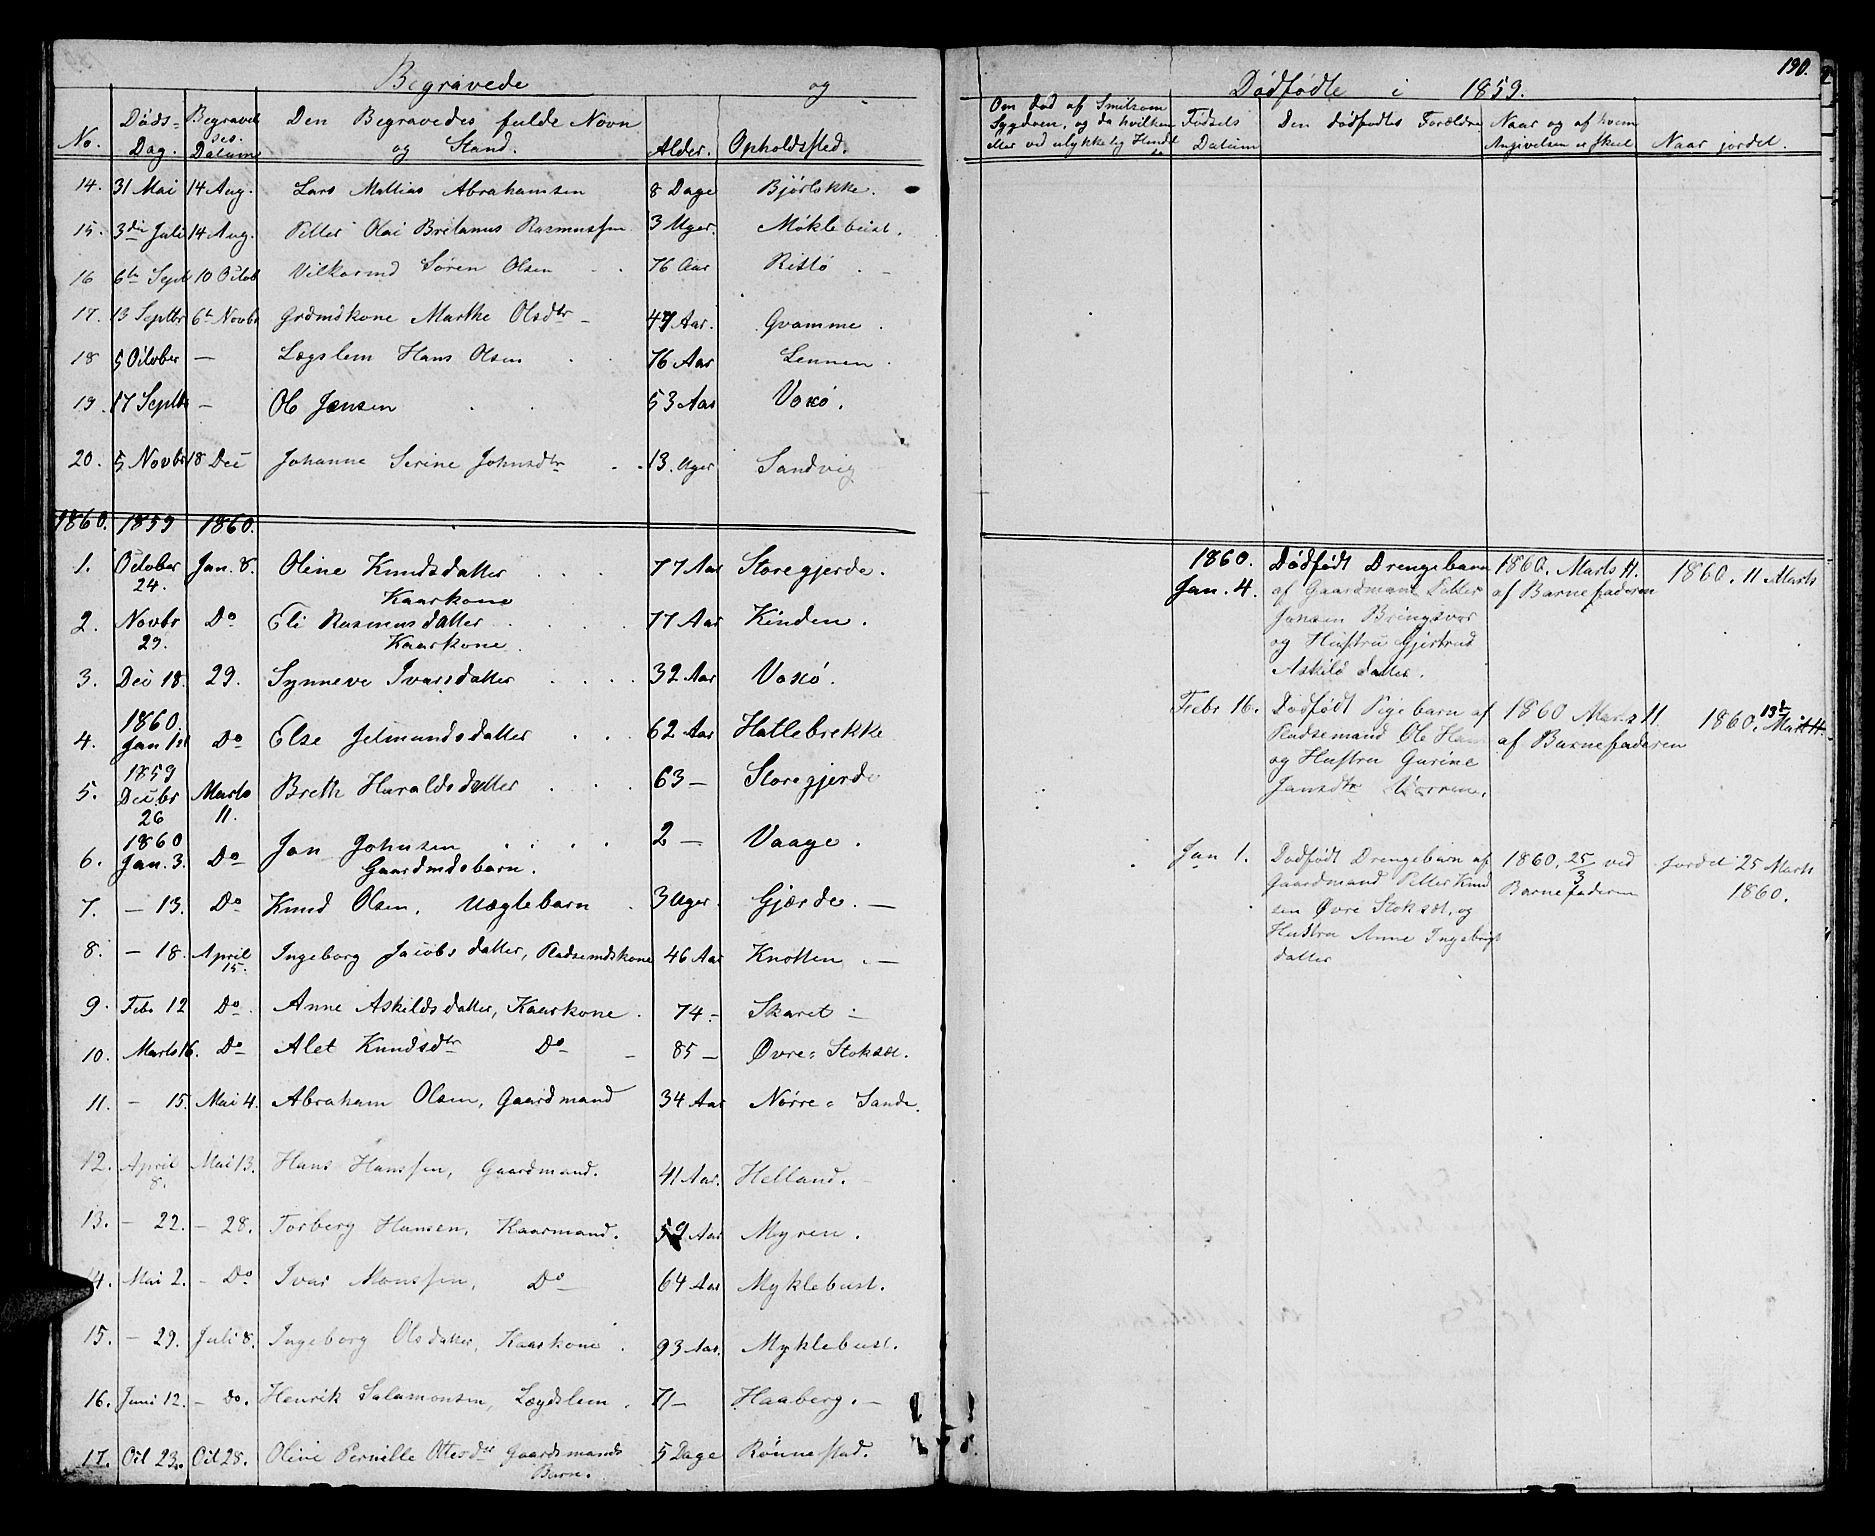 Begravede og
No. Døds-Dag. Begravelses Datum Den Begravedes fulde Navn og Stand. Alder. Opholdssted.
14. 31 Mai 14 Aug. Lars Mathias Abrahamsen 8 Dage Bjørlokke.
15. 3die Juli 14 Aug. Petter Olai Britanus Rasmussen 3 Uger. Møklebust.
16 6te Sept 10 Octob Vilkarmd Søren Olsen 76 Aar Ristø
17. 13 Septbr 6te Novbr Grdmdskone Marthe Olsdtr 47 Aar. Gvamme.
18 5 October — Lægslem Hans Olsen 76 Aar Lennen.
19. 17 Septbr — Ole Jensen 53 Aar Voxø.
20. 5 Novbr 18 Dec Johanne Serine Johnsdtr 13. Uger Sandvig
1860. 1859 1860.
1. October 24. Jan. 8. Oline Knudsdatter Kaarkone 77 Aar Storegjerde.
2. Novbr 29. Do Eli Rasmusdatter Kaarkone. 77 Aar Kinden.
3. Dec 18. 29. Synneve Ivarsdatter 32 Aar Voxø.
4. 1860. Jan 1st Do Else Jetmundsdatter 62 Aar Hatlebrekke
5. 1859 Decbr 26 Marts 11. Breth Haraldsdatter 63 — Storegjerde
6. 1860 Jan. 3. Do Jon Johnsen Gaardmdsbarn. 2 — Vaage.
7. — 13. Do Knud Olsen, Uægtebarn 3 Uger. Gjærde. —
8. — 18. April 15. Ingeborg Jacobsdatter, Pladsemdskone 46 Aar Knotten. —
9. Febr 12 Do. Anne Askildsdatter, Kaarkone. 74 — Skaret —
10. Marts 16. Do Alet Knudsdtr Do 85 — Øvre- Stoksæt.
11. — 15. Mai 4. Abraham Olsen, Gaardmand 34 Aar Nørre- Sande.
12. April 8. Mai 13. Hans Hanssen, Gaardmand. 41 Aar. Helland. —
13. — 22. — 28. Torberg Hansen, Kaarmand. 59 Aar Myren.
14. Mai 2. — Do Ivar Monssen, Do 64 Aar Myklebust.
15. — 29. Juli 8. Ingeborg Olsdatter, Kaarkone. 93 Aar. Myklebust.
16. Juni 12. — Do. Henrik Salamonsen, Lægdslem. 71 — Haaberg. —
17. Oct 23. Oct 28. Oline Pernille Ottesdtr Gaardsmands Barn. 5 Dage Rønnestad.
190.
Dødfødte i 1859.
Om død af Smitsom Sygdom, og da hvilken eller ved ulykkelig Hændelse Fødsels Datum Den dødfødtes Forældre Naar og af hvem Angivelsen er skeet Naar jordet.
1860. Dødfødt Drengebarn 1860. Marts 11. 1860. 11 Marts
Jan. 4. af Gaardmand Petter af Barnefaderen
Jansen Bringsvor
og Hustru Gjertrud
Askildsdatter.
Febr 16. Dødfødt Pigebarn af 1860 Marts 11 1860. 13de Marts 11.
Pladsemand Ole Hans af Barnefaderen
og Hustru Gurine
Jansdtr
Jan 1. Dødfødt Drengebarn af 1860, 25/3 ved Jordet 25 Marts
Gaardmand Petter Knud Barnefaderen 1860.
sen Øvre Stoksæt, og
Hustru Anne Ingebrigts
datter